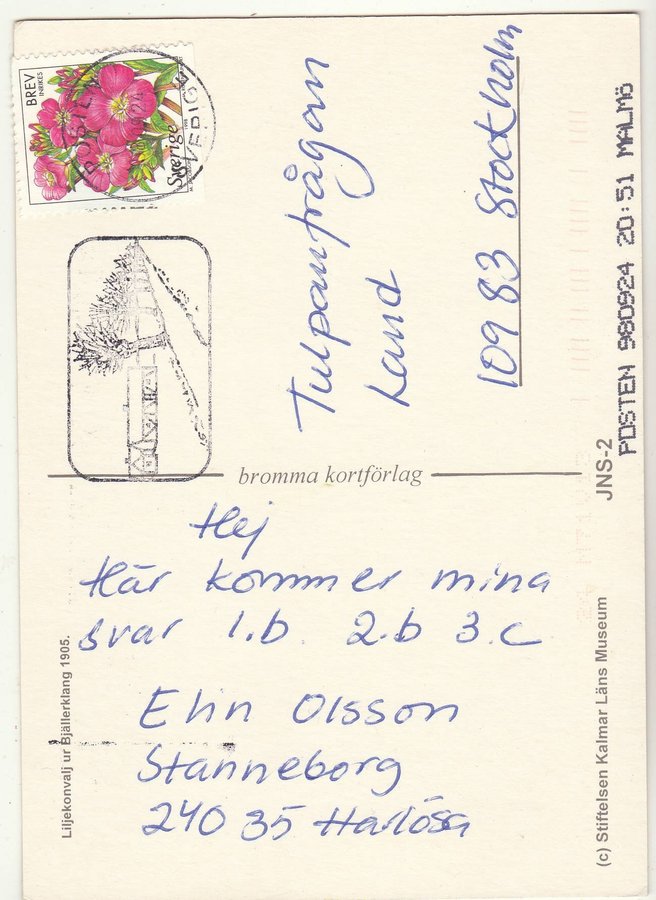 BREV
INRIKES
Sverige
1998
Tulpanfrågan
Land
109 83 Stockholm
POSTEN 980924 20:51 MALMÖ
JNS-2
bromma kortförlag
Hej
Här kommer mina
svar 1.b. 2.b 3.c
Elin Olsson
Stanneborg
240 35 Harlösa
Liljekonvalj ur Bjällerklang 1905.
(c) Stiftelsen Kalmar Läns Museum